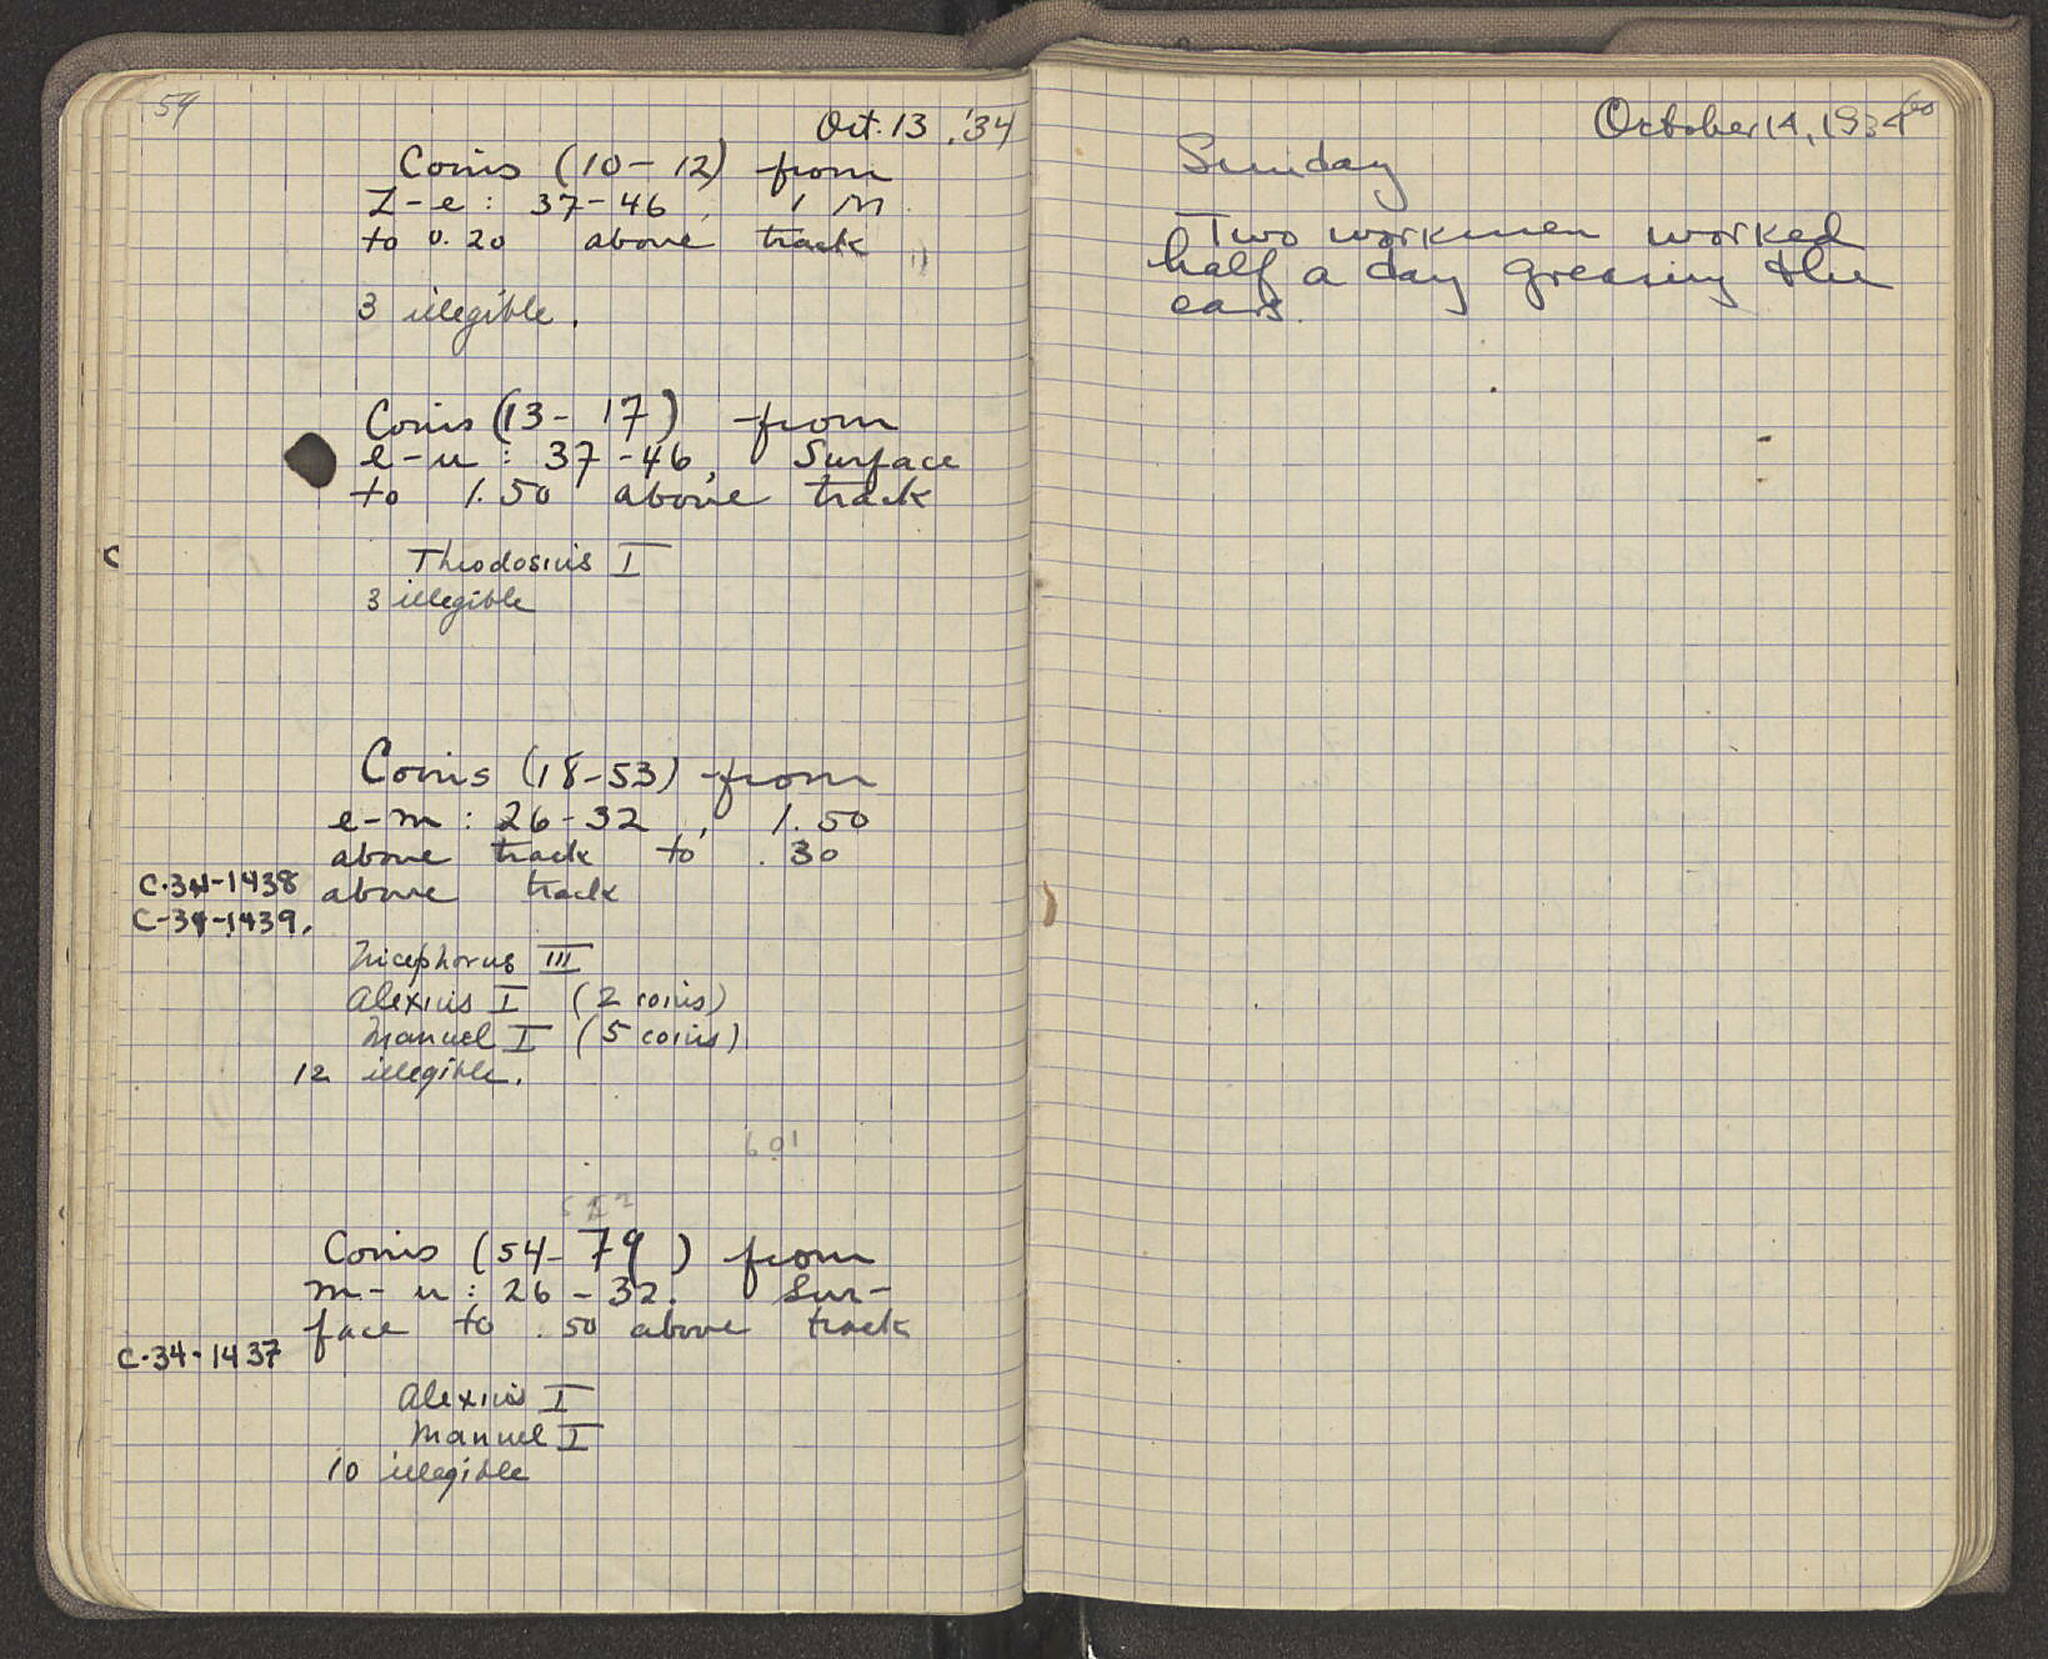 59
Oct. 13, '34
Coins (10-12) from
Z-e: 37-46, 1 M
to 0.20 above track
3 illegible.
Coins (13-17) from
e-u: 37-46, Surface
to 1.50 above track
C
Theodosius I
3 illegible
Coins (18-53) from
e-m: 26-32, 1.50
above track to .30
C-34-1438 above track
C-34-1439.
Nicephorus III
Alexius I (2 coins)
Manuel I (5 coins)
12 illegible.
Coins (54-79) from
m-u: 26-32. Sur-
face to .50 above track
C-34-1437
Alexius I
Manuel I
10 illegible
October 14, 1934 60
Sunday
Two workmen worked
half a day greasing the
cars.